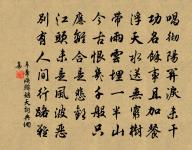 唱徹陽關淚未干
功名餘事且加餐
浮天水送無窮樹
帶雨雲埋一半山
今古恨幾千般只
應離合是悲歡
江頭未是風波惡
別有人間行路難